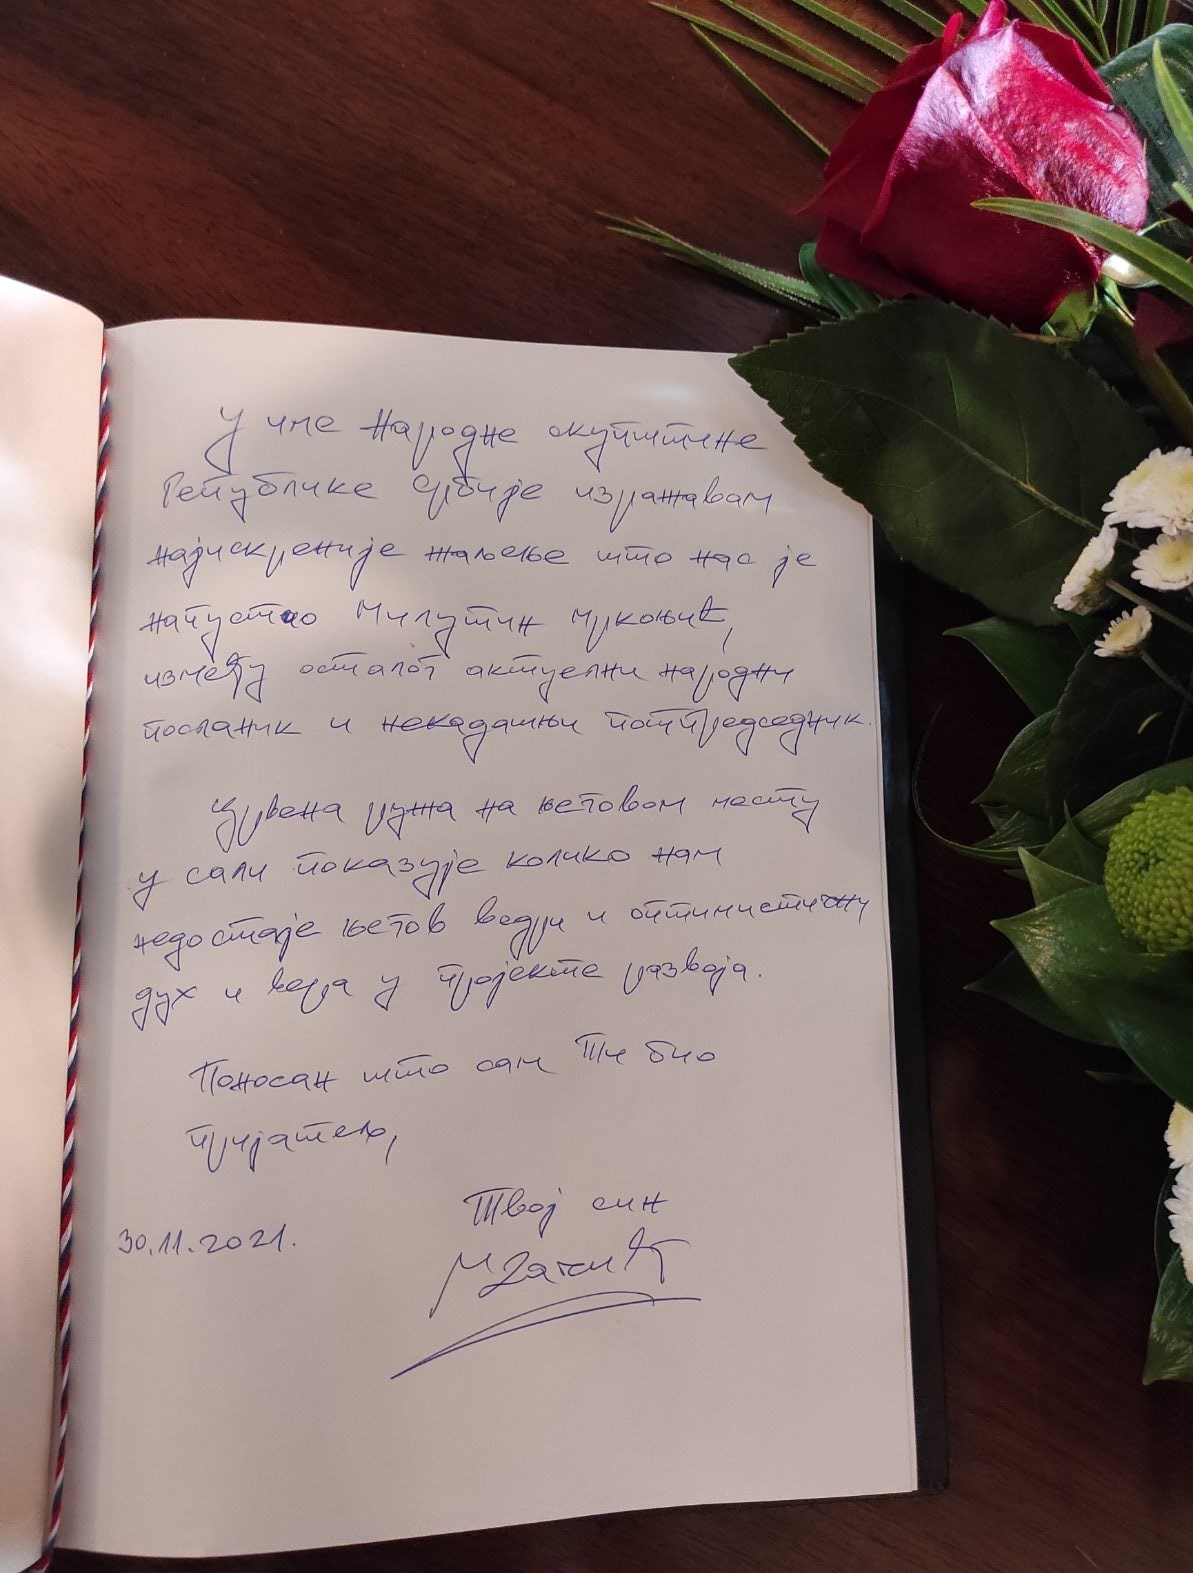 У име Народне скупштине
Републике Србије изражавам
најискреније жаљење што нас је
напустио Милутин Мркоњић,
између осталог актуелни народни
посланик и некадашњи потпредседник.
Црвена ружа на његовом месту
у сали показује колико нам
недостаје његов ведри и оптимистични
дух и вера у пројекте развоја.
Поносан што сам Ти био
пријатељ,
Твој син
30.11.2021.